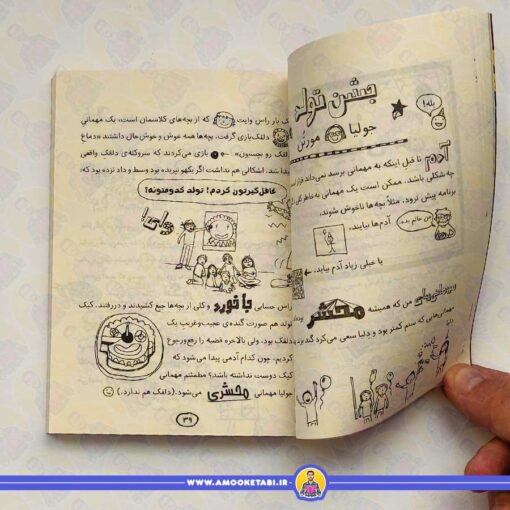 بله!
جشن تولد
جولیا مورتُن
آدم تا قبل اینکه به مهمانی برسد نمی‌داند قرار
چه شکلی باشد. ممکن است یک مهمانی به خاطر کلی
برنامه پیش نرود. مثلاً بچه‌ها ناخوش شوند.
من حالم بده
آدم‌ها نیایند.
یا خیلی زیاد آدم بیاید.
من که همیشه محشر
مهمانی‌هایی که سنم کمتر بود و دلیا سعی می‌کرد گند بزند
یک بار راس وایت که از بچه‌های کلاسمان است، یک مهمانی
دلقک‌بازی گرفت. بچه‌ها همه خوش و خوش‌حال داشتند «دماغ
دلقک رو بچسبون» بازی می‌کردند که سروکله‌ی دلقک واقعی
پیدا شد. اشکالی هم نداشت اگر یکهو نپریده بود وسط و داد نزده بود که:
غافل‌گیرتون کردم! تولد کدومتونه!
وای!
راس حسابی جا خورد و کلی از بچه‌ها جیغ کشیدند و دررفتند. کیک
تولد هم صورت گنده‌ی عجیب‌وغریب یک
دلقک بود. ولی بالاخره قضیه را رفع‌ورجوع
کردیم، چون کدام آدمی پیدا می‌شود که
کیک دوست نداشته باشد؟ مطمئنم مهمانی
جولیا مهمانی محشری می‌شود. (دلقک هم ندارد.)
۳۹
WWW.AMOOKETABI.IR